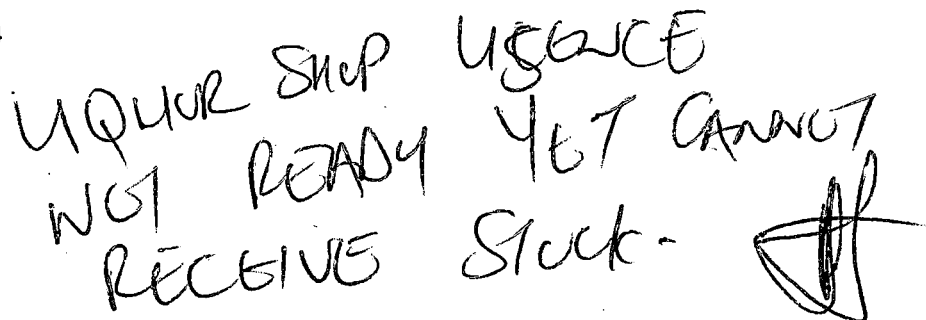 LIQUOR SHOP LISENCE
NOT READY YET CANNOT
RECEIVE STOCK.